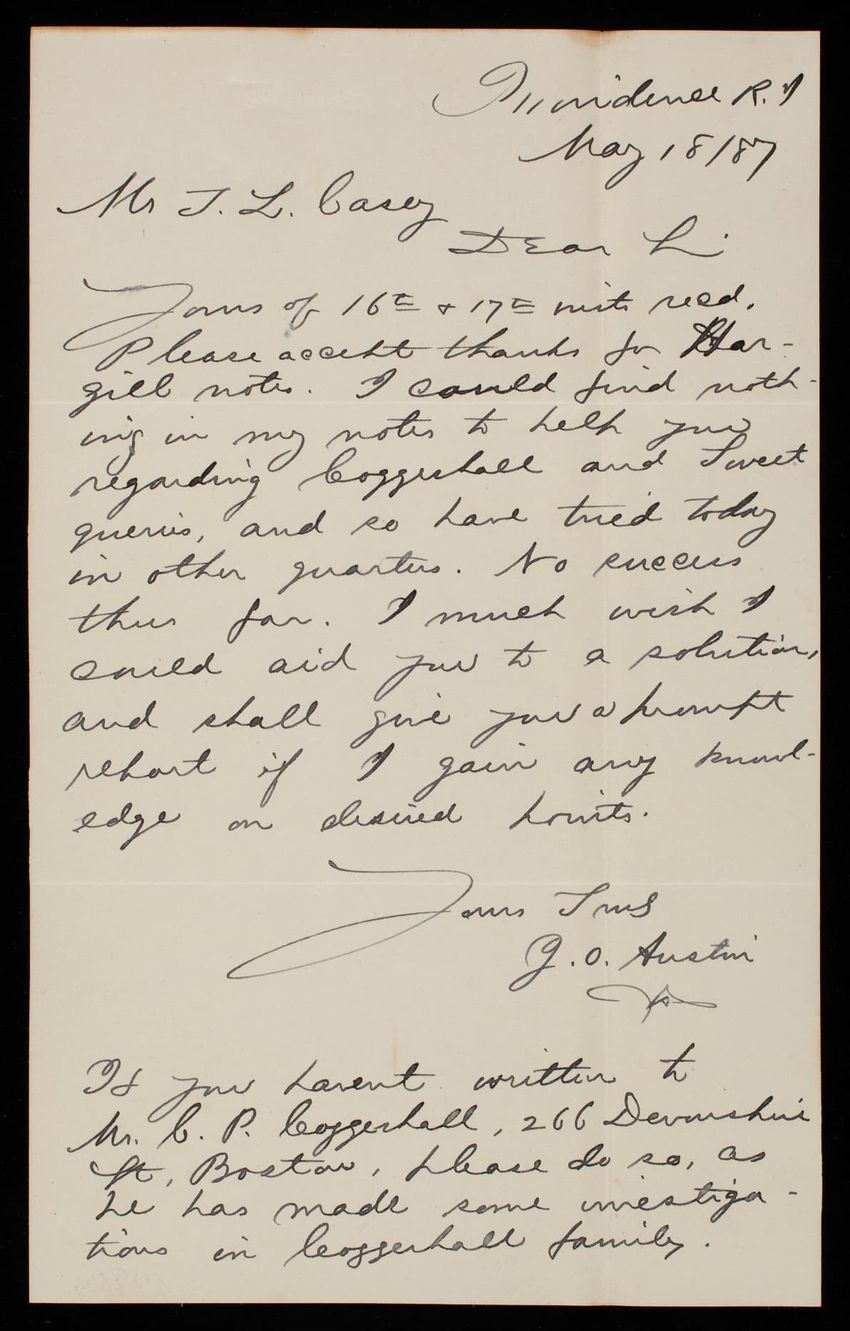 Providence R.I
May 18/87
Mr T. L. Casey
Dear Sir
Yours of 16th & 17th insts recd.
Please accept thanks for Har-
gill notes. I could find noth-
ing in my notes to help you
regarding Coggeshall and Sweet
queries, and so have tried today
in other quarters. No success
thus far. I much wish I
could aid you to a solution,
and shall give you a prompt
report if I gain any knowl-
edge on desired points.
Yours Truly
J. O. Austin
If you havent written to
Mr. C. P. Coggeshall, 266 Devonshire
St, Boston, please do so, as
he has made some investiga-
tions in Coggeshall family.